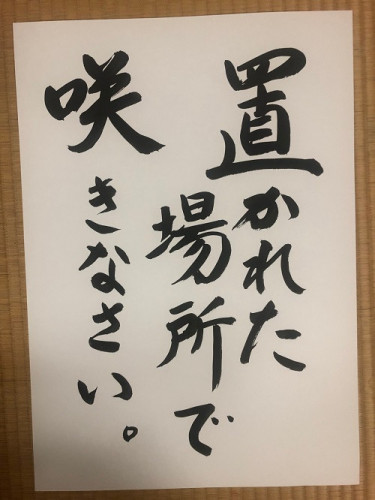 置かれた
場所で
咲きなさい。